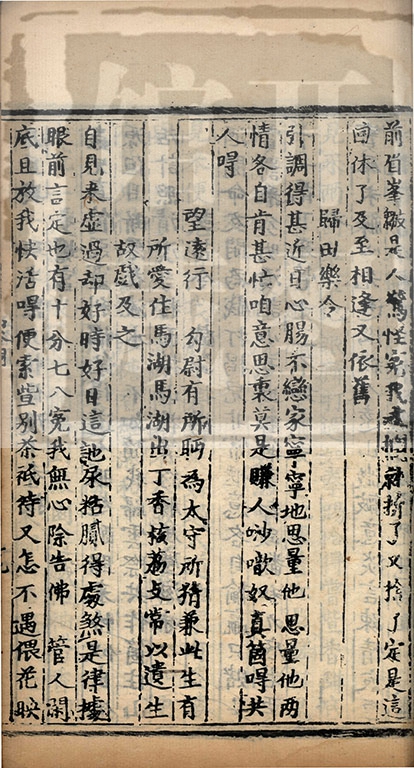 前眉峯皺是人驚怪冤我忒撋就拚了又捨了定是這
回休了及至相逢又依舊
歸田樂令
引調得甚近日心腸不戀家寧寧地思量他思量他兩
情各自肯甚忙咱意思裏莫是賺人唦噷奴真箇嘚共
人嘚
望遠行 勾尉有所盼為太守所猜兼此生有
所愛住馬湖馬湖出丁香核荔支常以遺生
故戲及之
自見來虛過却好時好日這訑尿粘膩得處煞是律據
眼前言定也有十分七八冤我無心除告佛 管人閑
底且放我快活嘚便索些別茶祗待又怎不遇偎花映